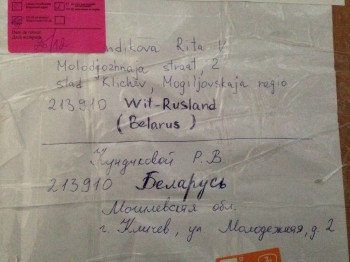 25/12
Rita V
Molodgoznaja straat, 2
stad Klichev, Mogiljovskaja regio
213910 Wit-Rusland
(Belarus)
Кундиковой Р. В
213910 Беларусь
Могилевская обл,
г. Кличев, ул Молодежная, д. 2